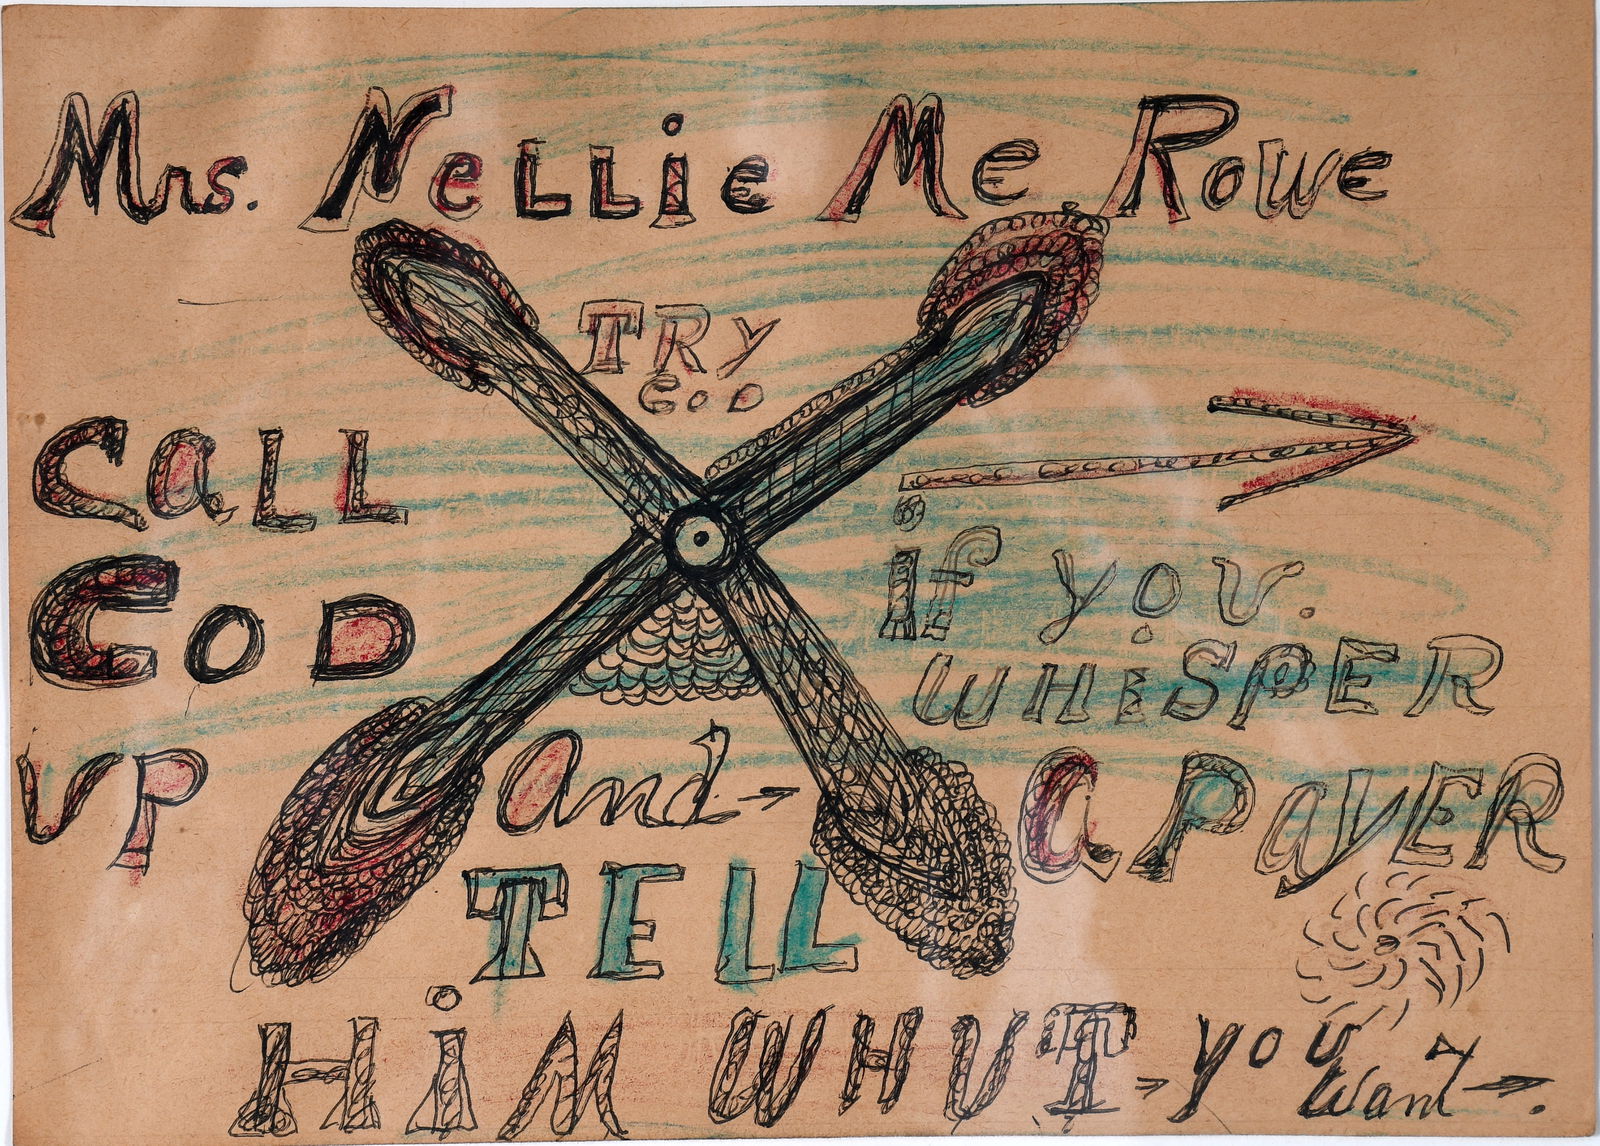 Mrs. NeLLie Me Rowe
TRy
GoD
CaLL
GoD
UP
and
TELL
HiM WHUT you
Want
if you.
WHiSPER
a PayER